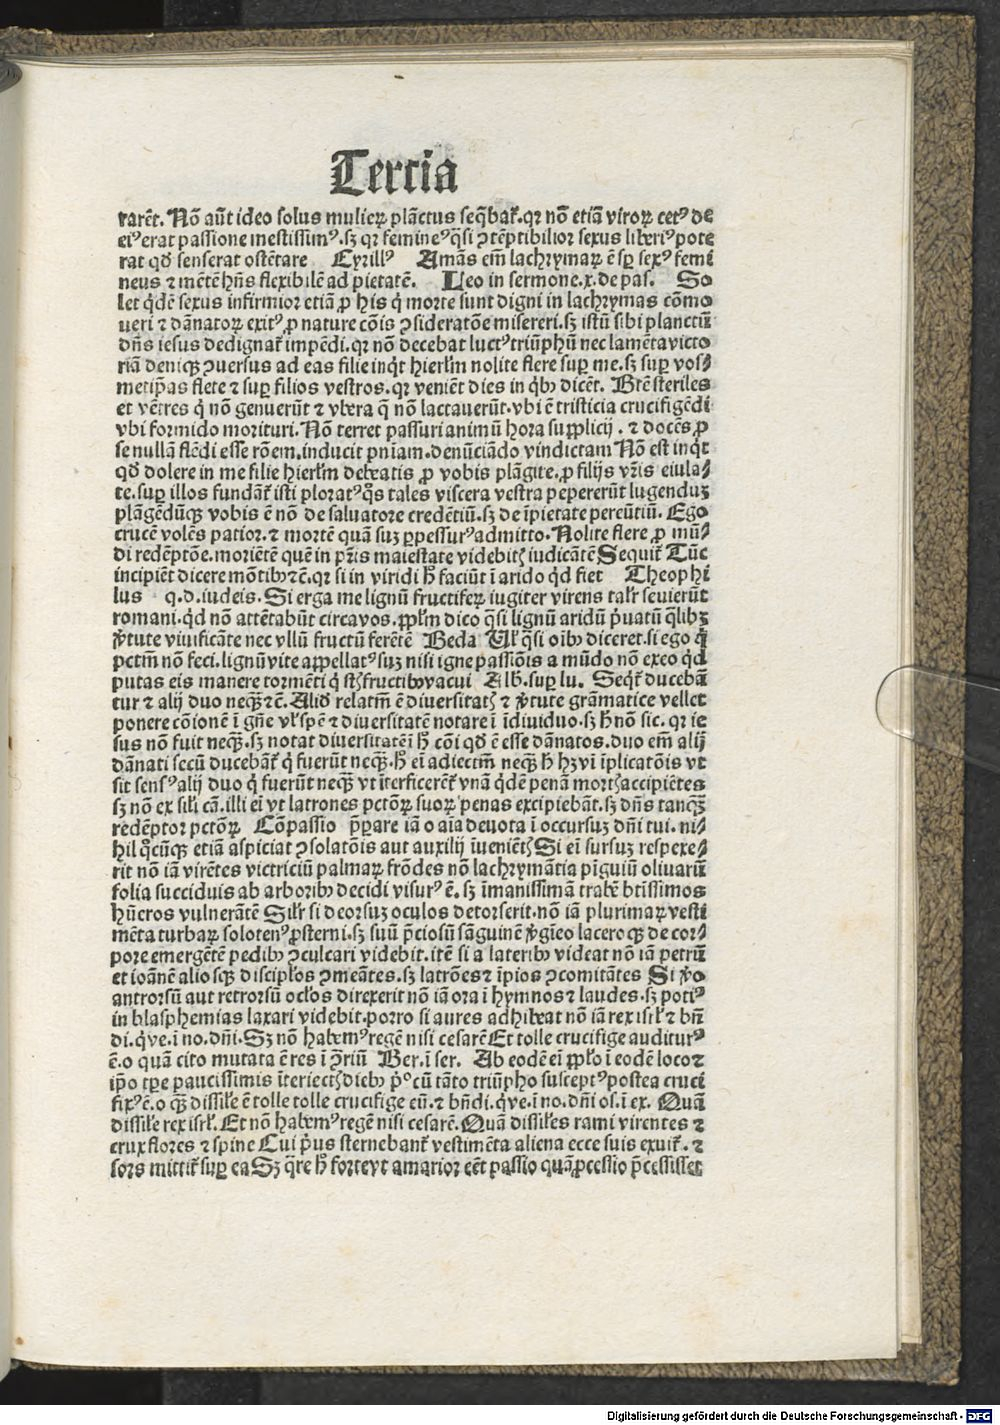 Tercia
rarēt. Nō aūt ideo solus mulieꝝ plāctus seq̄bat᷑. qꝛ nō etiā viroꝝ cetꝰ de
eiꝰ erat passione mestissimꝰ. sꝫ qꝛ feminеꝰ q̄si ꝯtēptibilior sexus liberiꝰ pote
rat qd̄ senserat ostētare Cyrillꝰ Amās em̄ lachrymaꝝ ē sꝑ sexꝰ femi
neus ⁊ mētē hn̄s flexibilē ad pietatē. Leo in sermone. x. de pas. So
let q̇dē sexus infirmior etiā ꝓ his q̇ morte sunt digni in lachrymas cōmo
ueri ⁊ dānatoꝝ exitꝰ ꝓ nature cōis ꝯsideratōe misereri. sꝫ istū sibi planctū
dn̄s iesus dedignat᷑ impēdi. qꝛ nō decebat luctꝰ triūphū nec lamēta victo
riā deniqꝫ ꝯuersus ad eas filie inq̇t hierl̄m nolite flere suꝑ me. sꝫ suꝑ vos⸗
metip̄as flete ⁊ suꝑ filios vestros. qꝛ veniēt dies in q̇bꝰ dicēt. Btē steriles
et vētres q̇ nō genuerūt ⁊ vbera q̄ nō lactauerūt. vbi ē tristicia crucifigēdi
vbi formido morituri. Nō terret passuri animū hora supplicij. ⁊ docēs ꝓ
se nullā flēdi esse rōem. inducit pn̄iam. denūciādo vindictam Nō est inq̇t
qd̄ dolere in me filie hierl̄m debeatis ꝓ vobis plāgite. ꝓ filijs vr̄is eiula⸗
te. suꝑ illos fundat᷑ isti ploratꝰ q̄s tales viscera vestra pepererūt lugenduꝫ
plāgēdūqꝫ vobis ē nō de saluatore credētiū. sꝫ de īpietate pereūtiū. Ego
crucē volēs patior. ⁊ mortē quā suꝫ ꝑpessurꝰ admitto. Nolite flere ꝓ mū⸗
di redēptōe. moriētē quē in pr̄is maiestate videbitꝭ iudicātē Sequit᷑ Tūc
incipiēt dicere mōtibꝰ ⁊c̄. qꝛ si in viridi h̄ faciūt ī arido q̇d fiet Theophi
lus q. d. iudeis. Si erga me lignū fructifeꝝ iugiter virens talr̄ seuierūt
romani. q̇d nō attētabūt circa vos. ꝓpl̄m dico q̄si lignū aridū ṗuatū q̄libꝫ
v̇tute viuificāte nec vllū fructū ferētē Beda Vl̄ q̄si oībꝰ diceret. si ego q̇
pctm̄ nō feci. lignū vite appellatꝰ suꝫ nisi igne passiōis a mūdo nō exeo q̇d
putas eis manere tormēti q̇ st̄ fructibꝰ vacui Alb̄. suꝑ lu. Seq̄t᷑ ducebā
tur ⁊ alij duo neqꝫ̄ ⁊c̄. Aliōd relatm̄ ē diuersitatꝭ ⁊ v̇tute grāmatice vellet
ponere cōionē ī gn̄e vl̄ spē ⁊ diuersitatē notare ī īdiuiduo. sꝫ h̄ nō sic. qꝛ ie
sus nō fuit neqꝫ̄. sꝫ notat diuersitatē ī h̄ cōi qd̄ ē esse dānatos. duo em̄ alij
dānati secū ducebāt᷑ q̇ fuerūt neqꝫ̄. h̄ ei̇̄ adiectm̄ neqꝫ̄ h̄ hꝫ vi īplicatōis vt
sit sensꝰ alij duo q̇ fuerūt neqꝫ̄ vt īterficerēt᷑ vnā q̇dē penā mortꝭ accipiētes
sꝫ nō ex sil̄i cā. illi ei̇̄ vt latrones pctōꝝ suoꝝ penas excipiebāt. sꝫ dn̄s tanqꝫ̄
redēptor pctōꝝ Cōpassio p̄pare iā o aīa deuota ī occursuꝫ dn̄i tui. ni⸗
hil q̊cūqꝫ etiā aspiciat ꝯsolatōis aut auxilij īueniētꝭ Si ei̇̄ sursuꝫ respexe⸗
rit nō iā virētes victriciū palmaꝝ frōdes nō lachrymātia pīguiū oliuarū
folia succiduis ab arboribꝰ decidi visurꝰ ē. sꝫ īmanissimā trabē btīssimos
hūeros vulnerātē Silr̄ si deorsuꝫ oculos detorserit. nō iā plurimaꝝ vesti
mēta turbaꝝ solotenꝰ ꝓsterni. sꝫ suū p̄ciosū sāguinē v̇gīeo laceroqꝫ de cor⸗
pore emergētē pedibꝰ ꝯculcari videbit. itē si a lateribꝰ videat nō iā petrū
et ioānē aliosqꝫ discipl̄os ꝯmeātes. sꝫ latrōes ⁊ īpios ꝯcomitātes Si v̊o
antrorsū aut retrorsū ocl̄os direxerit nō iā ora ī hymnos ⁊ laudes. sꝫ potiꝰ
in blasphemias laxari videbit. porro si aures adhibeat nō iā rex isrl̄ ⁊ bn̄
di. q̇ ve. ī no. dn̄i. Sꝫ nō habemꝰ regē nisi cesarē Et tolle crucifige auditurꝰ
ē. o quā cito mutata ē res ī ꝯriū Ber. ī ser. Ab eodē ei̇̄ ppl̄o ī eodē loco ⁊
ip̄o tꝑe paucissimis īteriectꝭ diebꝰ p̊ cū tāto triūpho susceptꝰ postea cruci
fixꝰ ē. o qꝫ̄ dissil̄e ē tolle tolle crucifige eū. ⁊ bn̄di. q̇ ve. ī no. dn̄i os. ī ex. Quā
dissil̄e rex isrl̄. Et nō habemꝰ regē nisi cesarē. Quā dissil̄es rami virentes ⁊
crux flores ⁊ spine Cui ṗus sternebant᷑ vestimēta aliena ecce suis exuit᷑. ⁊
sors mittit᷑ suꝑ ea Sꝫ q̄re h̄ forte vt amarior eēt passio quā ꝓcessio p̄cessisset
Digitalisierung gefördert durch die Deutsche Forschungsgemeinschaft - DFG